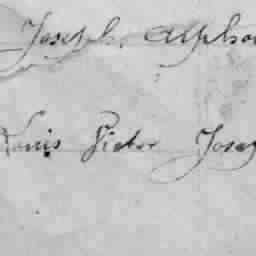 Joseph, Alphon
Louis Victor Josep